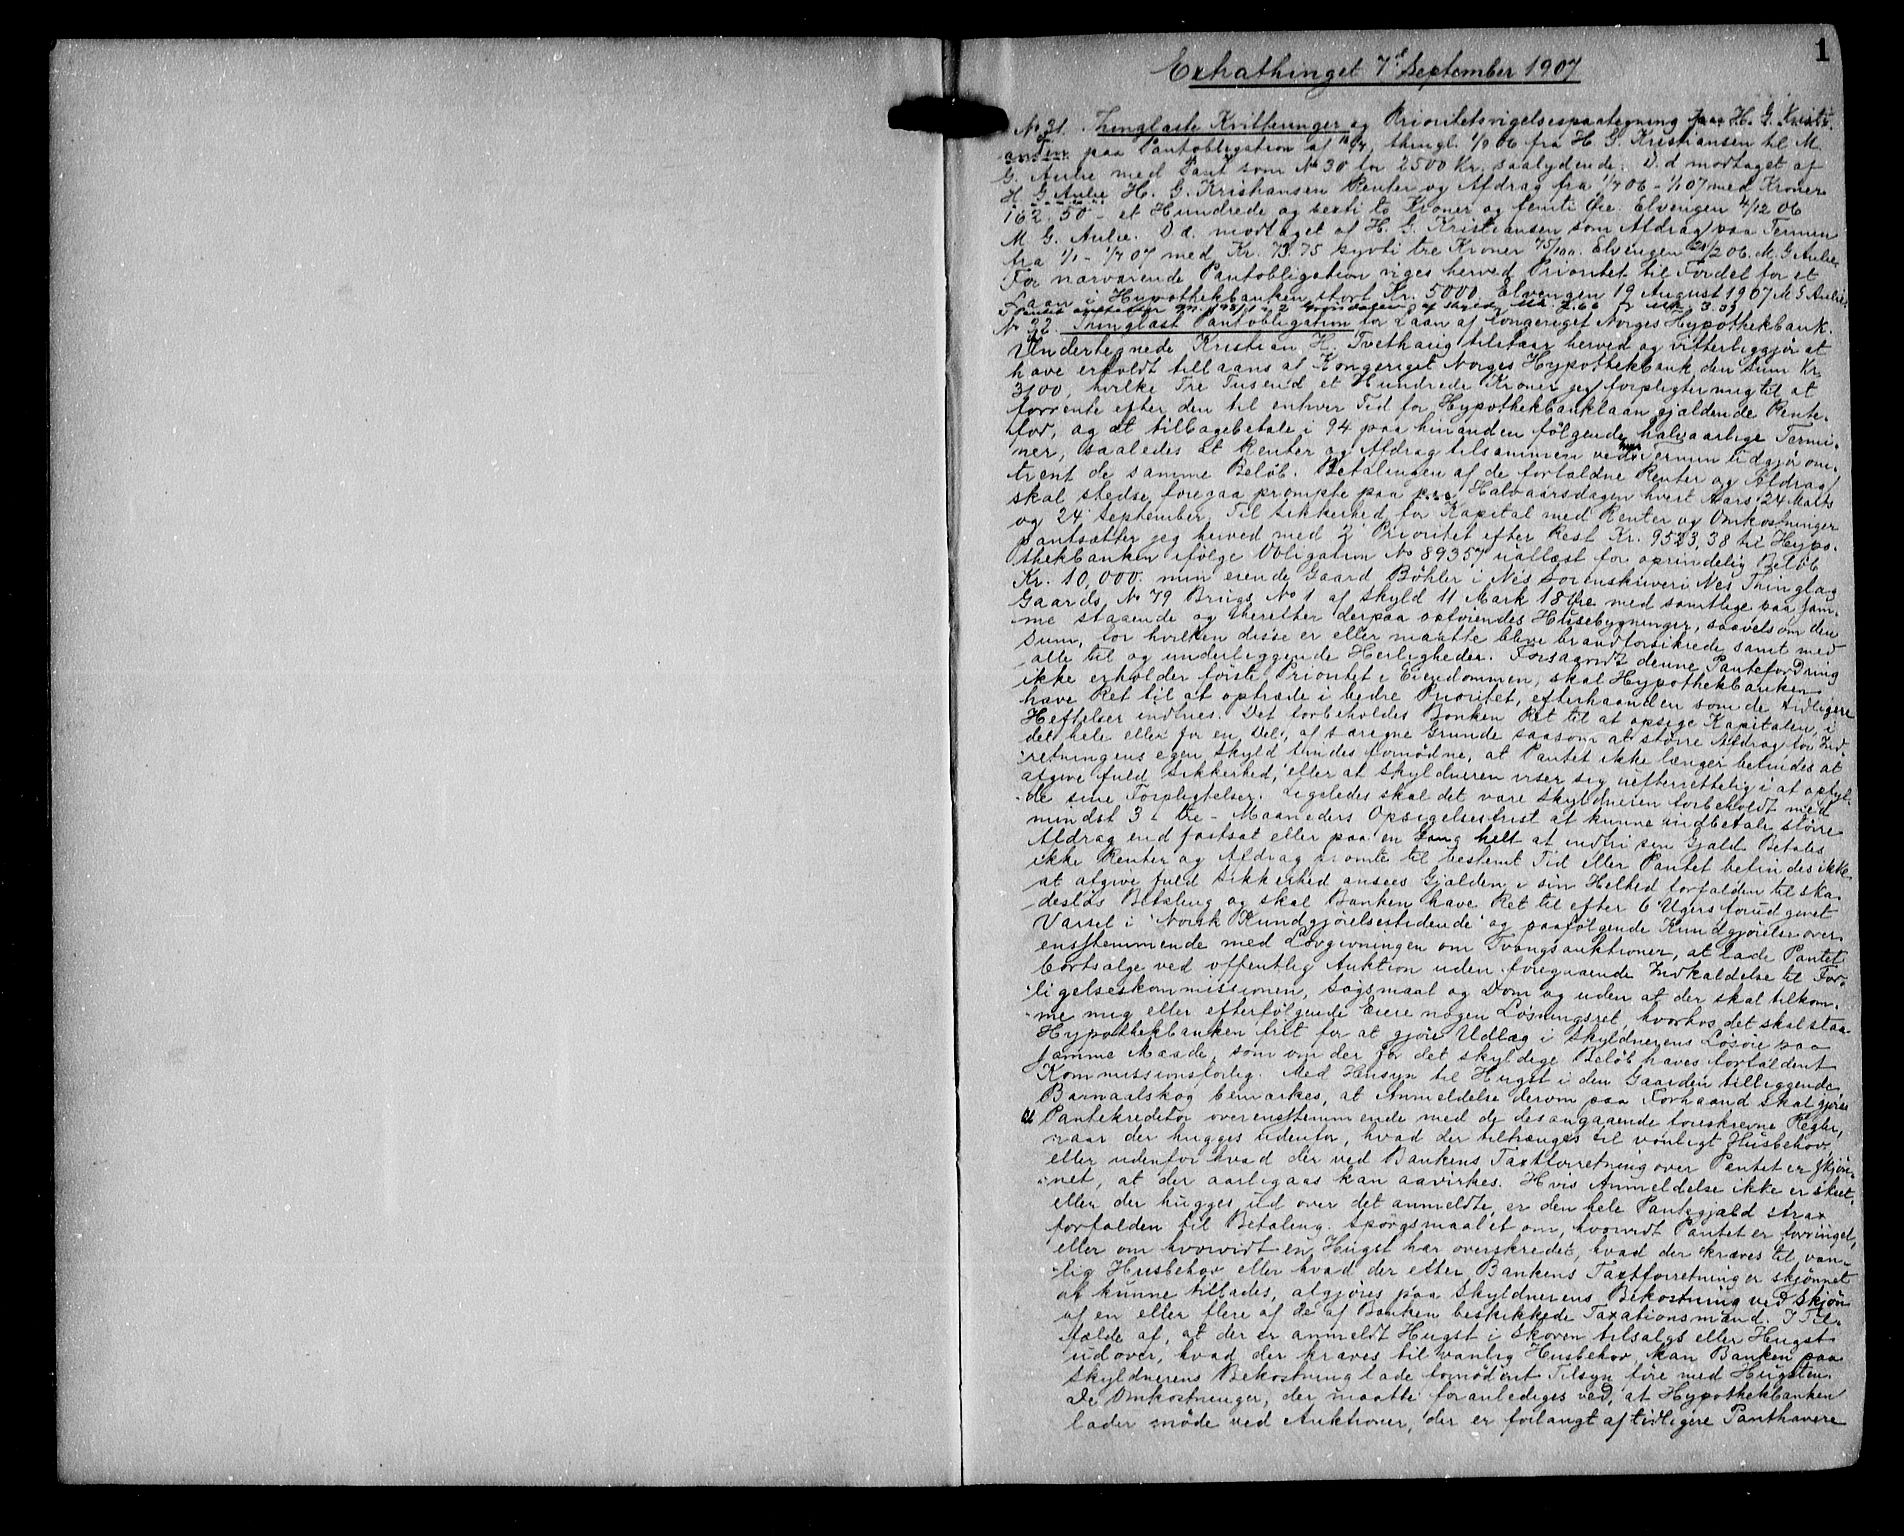 1
Extrathinget 7de September 1907
No 31. Thinglæste Kvitteringer og Prioritetsvigelsespaategning paa H. G. Kristi-
ansen paa Pantobligation af thingl. 1/9 06 fra H. G. Kristiansen til M.
G. Aulie med Pant som No 30 for 2500 Kr. saalydende: D. d modtaget af
H. G. Aulie H. G. Kristiansen Renter og Afdrag fra 1/7 06 - 1/1 07 med Kroner
162,50 - et Hundrede og sexti to Kroner og femti Øre. Elvengen 4/12 06
M G. Aulie. D. d. modtaget af H. G. Kristiansen som Afdrag paa Termin
fra 1/1 - 1/7 07 med Kr. 73.75 sytti tre Kroner 75/100. Elvengen 06. M. G Aulie
For nærværende Pantobligation viges herved Prioritet til Fordel for et
Laan i Hypothekbanken stort Kr. 5000. Elvengen 19 August 1907 M G Aulie
No 32 Thinglæst Pantobligation for Laan af Kongeriget Norges Hypothekbank.
Undertegnede Kristian H. Tvethaug tilstaar herved og vitterliggjør at
have erholdt tillaans af Kongeriget Norges Hypothekbank den Sum Kr.
3100, hvilke Tre Tusend et Hundrede Kroner jeg forpligter mig til at
forrente efter den til enhver Tid for Hypothekbanklaan gjældende Rente-
fod, og at tilbagebetale i 94 paa hinanden følgende halvaarlige Termi-
ner, saaledes at Renter og Afdrag tilsammen ved hver Termin udgjør om-
trent de samme Beløb. Betalingen af de forfaldne Renter og Afdrag
skal stedse foregaa prompte paa Halvaarsdagen hvert Aars 24 Marts
og 24 September. Til Sikkerhed for Kapital med Renter og Omkostninger
pantsætter jeg herved med 2 Prioritet efter Rest Kr. 9523,38 til Hypo-
thekbanken ifølge Obligation No 89357 udlæst for oprindelig Beløb
Kr. 10,000. min eiende Gaard Bøhler i Nes Sorenskriveri Nes Thinglag
Gaards No 79 Brugs No 1 af Skyld 11 Mark 18 Øre med samtlige paa sam-
me staaende og herefter derpaa opførendes Husebygninger, saavelsom den
Sum, for hvilken disse er eller maatte blive brandforsikrede samt med
alle til og underliggende Herligheder. Forsaavidt denne Pantefordring
ikke erholder første Prioritet i Eiendommen, skal Hypothekbanken
have Ret til at optræde i bedre Prioritet, efterhaanden som de tidligere
Heftelser indfries. Det forbeholdes Banken Ret til at opsige Kapitalen, i
det hele eller for en Del, af særegne Grunde saasom at større Afdrag for Ind-
retningens egen Skyld findes fornødne, at Pantet ikke længer befindes at
afgive fuld Sikkerhed, eller at Skyldneren viser sig uefterrettelig i at opfyl-
de sine Forpligtelser. Ligeledes skal det være Skyldneren forbeholdt med
mindst 3 - tre - Maaneders Opsigelsesfrist at kunne indbetale større
Afdrag end fastsat eller paa en Gang helt at indfri sin Gjæld. Betales
ikke Renter og Afdrag promte til bestemt Tid eller Pantet befindes ikke
at afgive fuld Sikkerhed ansees Gjælden i sin Helhed forfalden til ska-
desløs Betaling og skal Banken have Ret til efter 6 Ugers forud givet
Varsel i Norsk Kundgjørelsestidende og paafølgende Kundgjørelse over-
ensstemmende med Lovgivningen om Tvangsauktioner, at lade Pantet
bortsælge ved offentlig Auktion uden foregaaende Indkaldelse til For-
ligelseskommissionen, Søgsmaal og Dom og uden at der skal tilkom-
me mig eller efterfølgende Eiere nogen Løsningsret, hvorhos det skal staa
Hypothekbanken frit for at gjøre Udlæg i Skyldnerens Løsøre paa
samme Maade, som om der for det skyldige Beløb haves forfaldent
Kommissionsforlig. Med Hensyn til Hugst i den Gaarden tilliggende
Barnaalskog bemærkes, at Anmeldelse derom paa Forhaand skal gjøres
til Pantekreditor overensstemmende med de desangaaende foreskrevne Regler,
naar der hugges udenfor, hvad der tiltrænges til vanligt Husbehov,
eller udenfor hvad der ved Bankens Taxtforretning over Pantet er skjøn-
net, at der aarligaas kan aavirkes. Hvis Anmeldelse ikke er skeet,
eller der hugges ud over det anmeldte, er den hele Pantegjæld strax
forfalden til Betaling. Spørgsmaalet om, hvorvidt Pantet er forringet,
eller om hvorvidt en Hugst har overskredet, hvad der kræves til van-
lig Husbehov eller hvad der efter Bankens Taxtforretning er skjønnet
at kunne tillades, afgjøres paa Skyldnerens Bekostning ved Skjøn
af en eller flere af de af Banken beskikkede Taxationsmænd. I Til-
fælde af, at der er anmeldt Hugst i Skoven tilsalgs eller Hugst
udover, hvad der kræves til vanlig Husbehov, kan Banken paa
Skyldnerens Bekostning lade fornødent Tilsyn føre med Hugsten.
De Omkostninger, der maatte foranlediges ved, at Hypothekbanken
lader møde ved Auktioner, der er forlangt af tidligere Panthavere